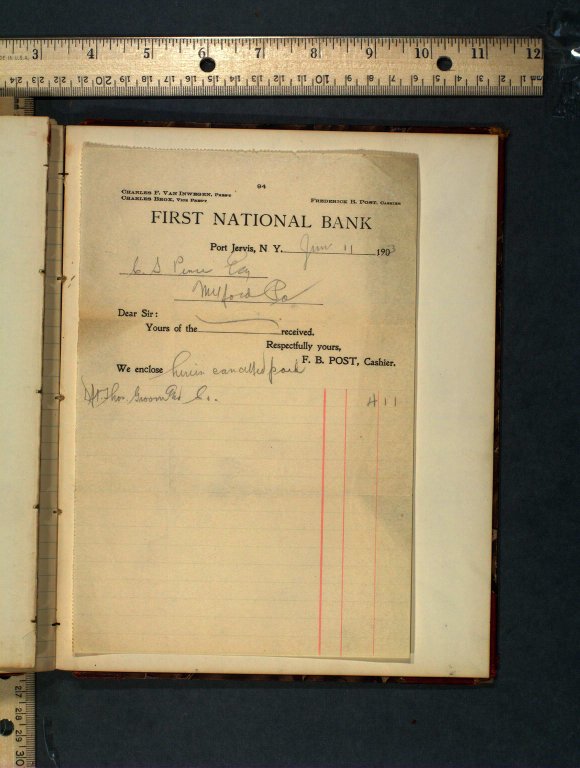 MADE IN U.S.A.
3 4 5 6 7 8 9 10 11 12
94
CHARLES F. VAN INWEGEN, PREST
CHARLES BROX, VICE PREST
FREDERICK B. POST, CASHIER
FIRST NATIONAL BANK
Port Jervis, N. Y. 11 1903
C. S. Esq
Milford Pa
Dear Sir:
Yours of the received.
Respectfully yours,
F. B. POST, Cashier.
We enclose herein cancelled paid
Dft. Thos. Groom & Co.
4 11